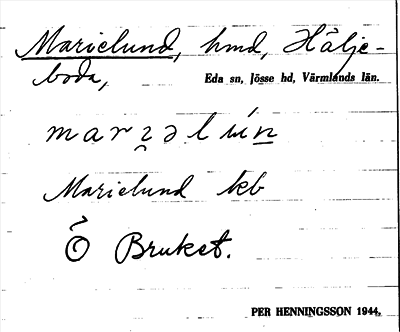 Marielund, hmd, Hälje-
boda,
Eda sn, Jösse hd, Värmlands län.
Marielund kb
Bruket.
PER HENNINGSSON 1944.